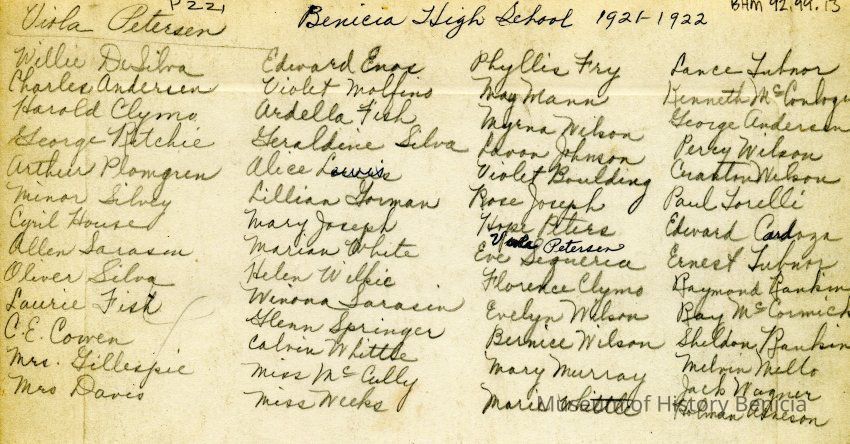 P221
BHM 92.99.13
Viola Petersen
Benicia High School 1921-1922
Willie DeSilva
Charles Andersen
Harold Clymo
George Ritchie
Arthur Plomgren
Minor Silvey
Cyril House
Allen Sarasin
Oliver Silva
Laurie Fish
C.E. Cowen
Mrs. Gillespie
Mrs Davis
Edward Enos
Violet Molfino
Ardella Fish
Geraldine Silva
Alice Lewis
Lillian Gorman
Mary Joseph
Marian White
Helen Wilkie
Winona Sarasin
Glenn Springer
Calvin Whittle
Miss McCully
Miss Weeks
Phyllis Fry
May Mann
Myrna Wilson
Lavon Johnson
Violet Boulding
Rose Joseph
Hope Peters
Viola Petersen
Eve Sequeria
Florence Clymo
Evelyn Wilson
Bernice Wilson
Mary Murray
Marie Whittle
Lance Tubnor
Kenneth
George Andersen
Perry Wilson
Wilson
Paul Torelli
Edward Cardoza
Ernest Tubnor
Raymond Rankin
Ray McCormick
Sheldon Rankin
Melvin Mello
Jack Wagner
Museum of History Benicia